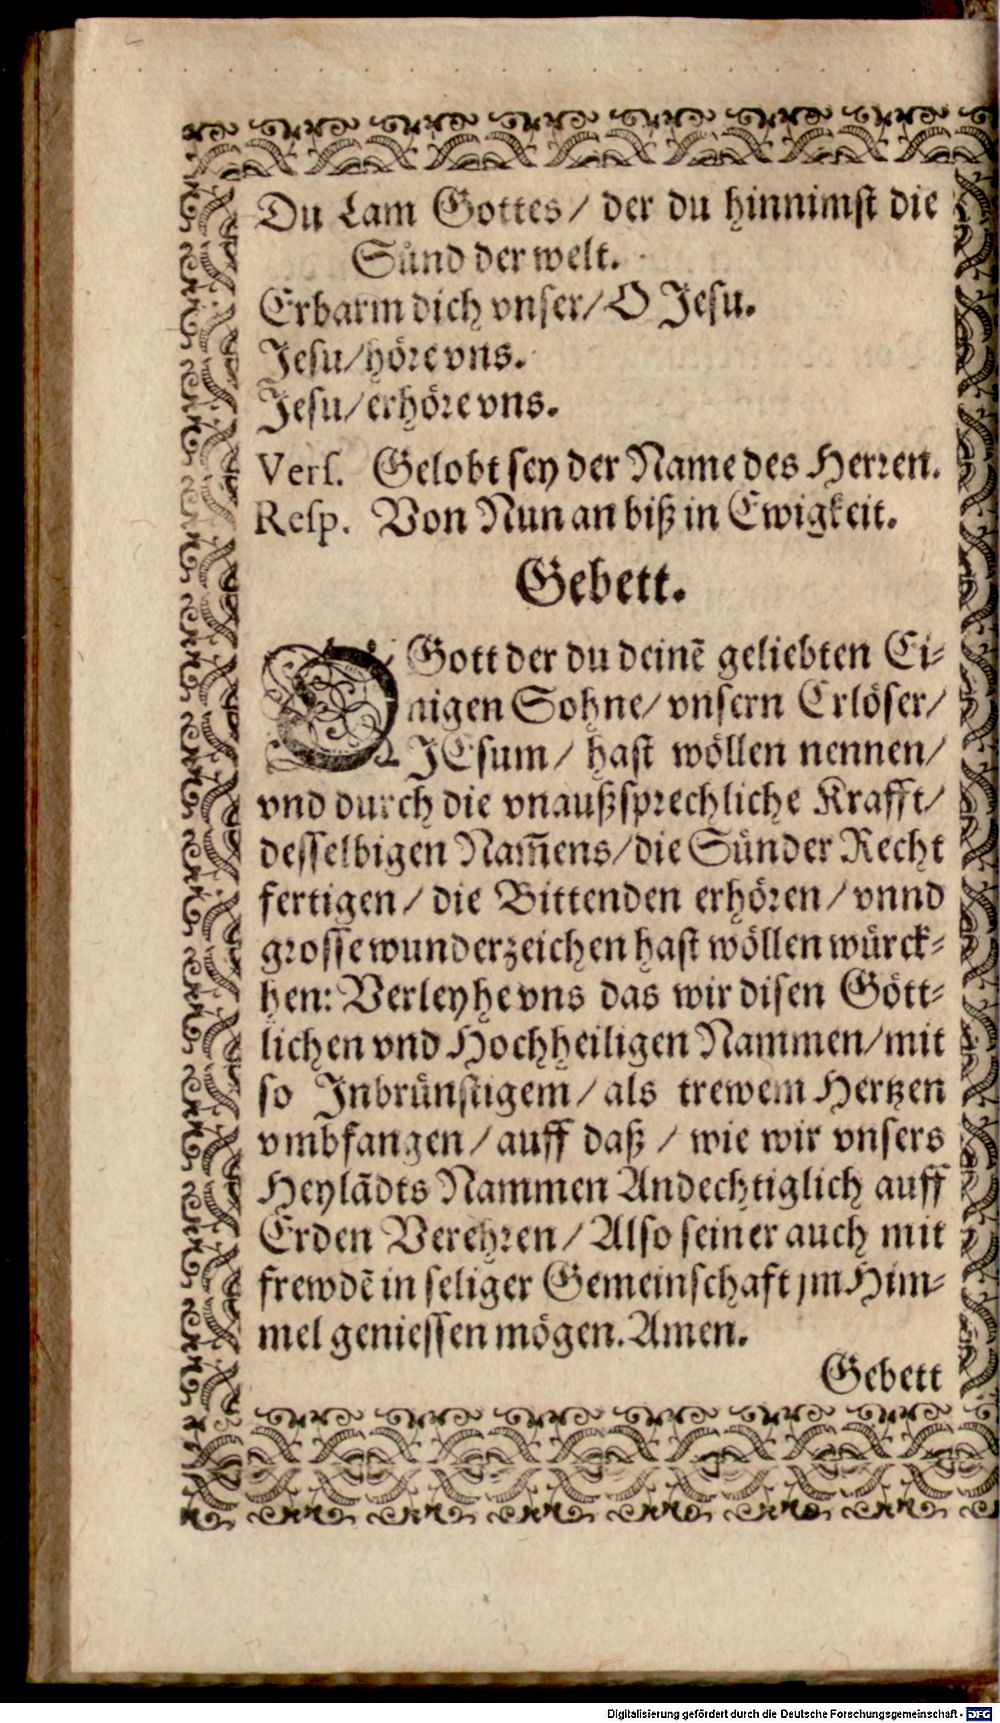 Du Lam Gottes/ der du hinnimst die
Sünd der welt.
Erbarm dich vnser/ O Jesu.
Jesu/ höre vns.
Jesu/ erhöre vns.
Vers. Gelobt sey der Name des Herren.
Resp. Von Nun an biß in Ewigkeit.
Gebett.
O Gott der du deinē geliebten Ei-
nigen Sohne/ vnsern Erlöser/
JEsum/ hast wöllen nennen/
vnd durch die vnaußsprechliche Krafft/
desselbigen Nam̄ens/ die Sünder Recht
fertigen/ die Bittenden erhören/ vnnd
grosse wunderzeichen hast wöllen würck-
hen: Verleyhe vns das wir disen Gött-
lichen vnd Hochheiligen Nammen/ mit
so Inbrünstigem/ als trewem Hertzen
vmbfangen/ auff daß/ wie wir vnsers
Heylādts Nammen Andechtiglich auff
Erden Verehren/ Also seiner auch mit
frewdē in seliger Gemeinschaft jm Him-
mel geniessen mögen. Amen.
Gebett
Digitalisierung gefördert durch die Deutsche Forschungsgemeinschaft - DFG